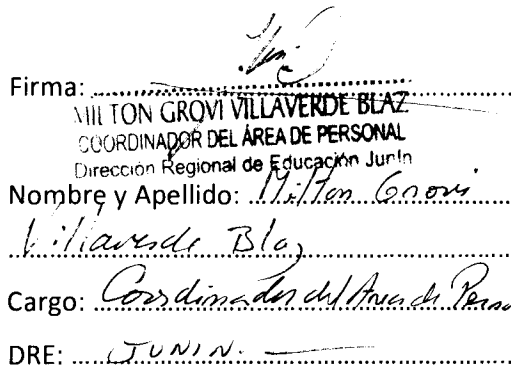 Firma:
MILTON GROVI VILLAVERDE BLAZ
COORDINADOR DEL ÁREA DE PERSONAL
Dirección Regional de Educación Junín
Nombre y Apellido: Milton Grovi
Villaverde Blaz
Cargo: Coordinador del Area de Perso
DRE: JUNIN.